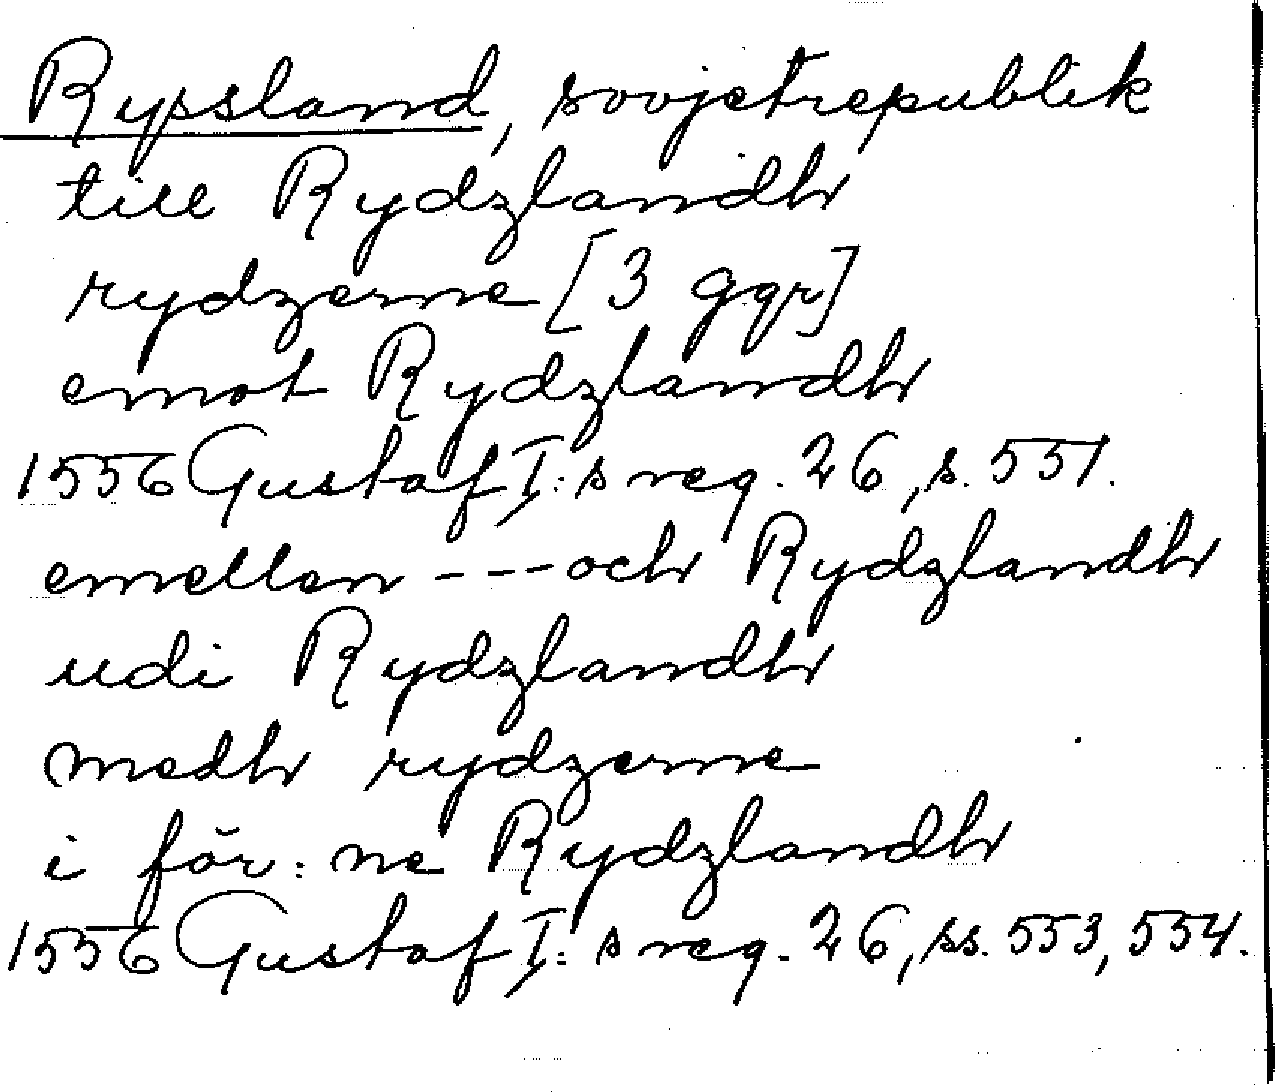 Ryssland, sovjetrepublik
till Rydzlandh
rydzerne [3 ggr]
emot Rydzlandh
1556 Gustaf I:s reg. 26, s. 551.
emellen --- och Rydzlandh
udi Rydzlandh
medh rydzerne
i för:ne Rydzlandh
1556 Gustaf I:s reg. 26, ss. 553, 554.